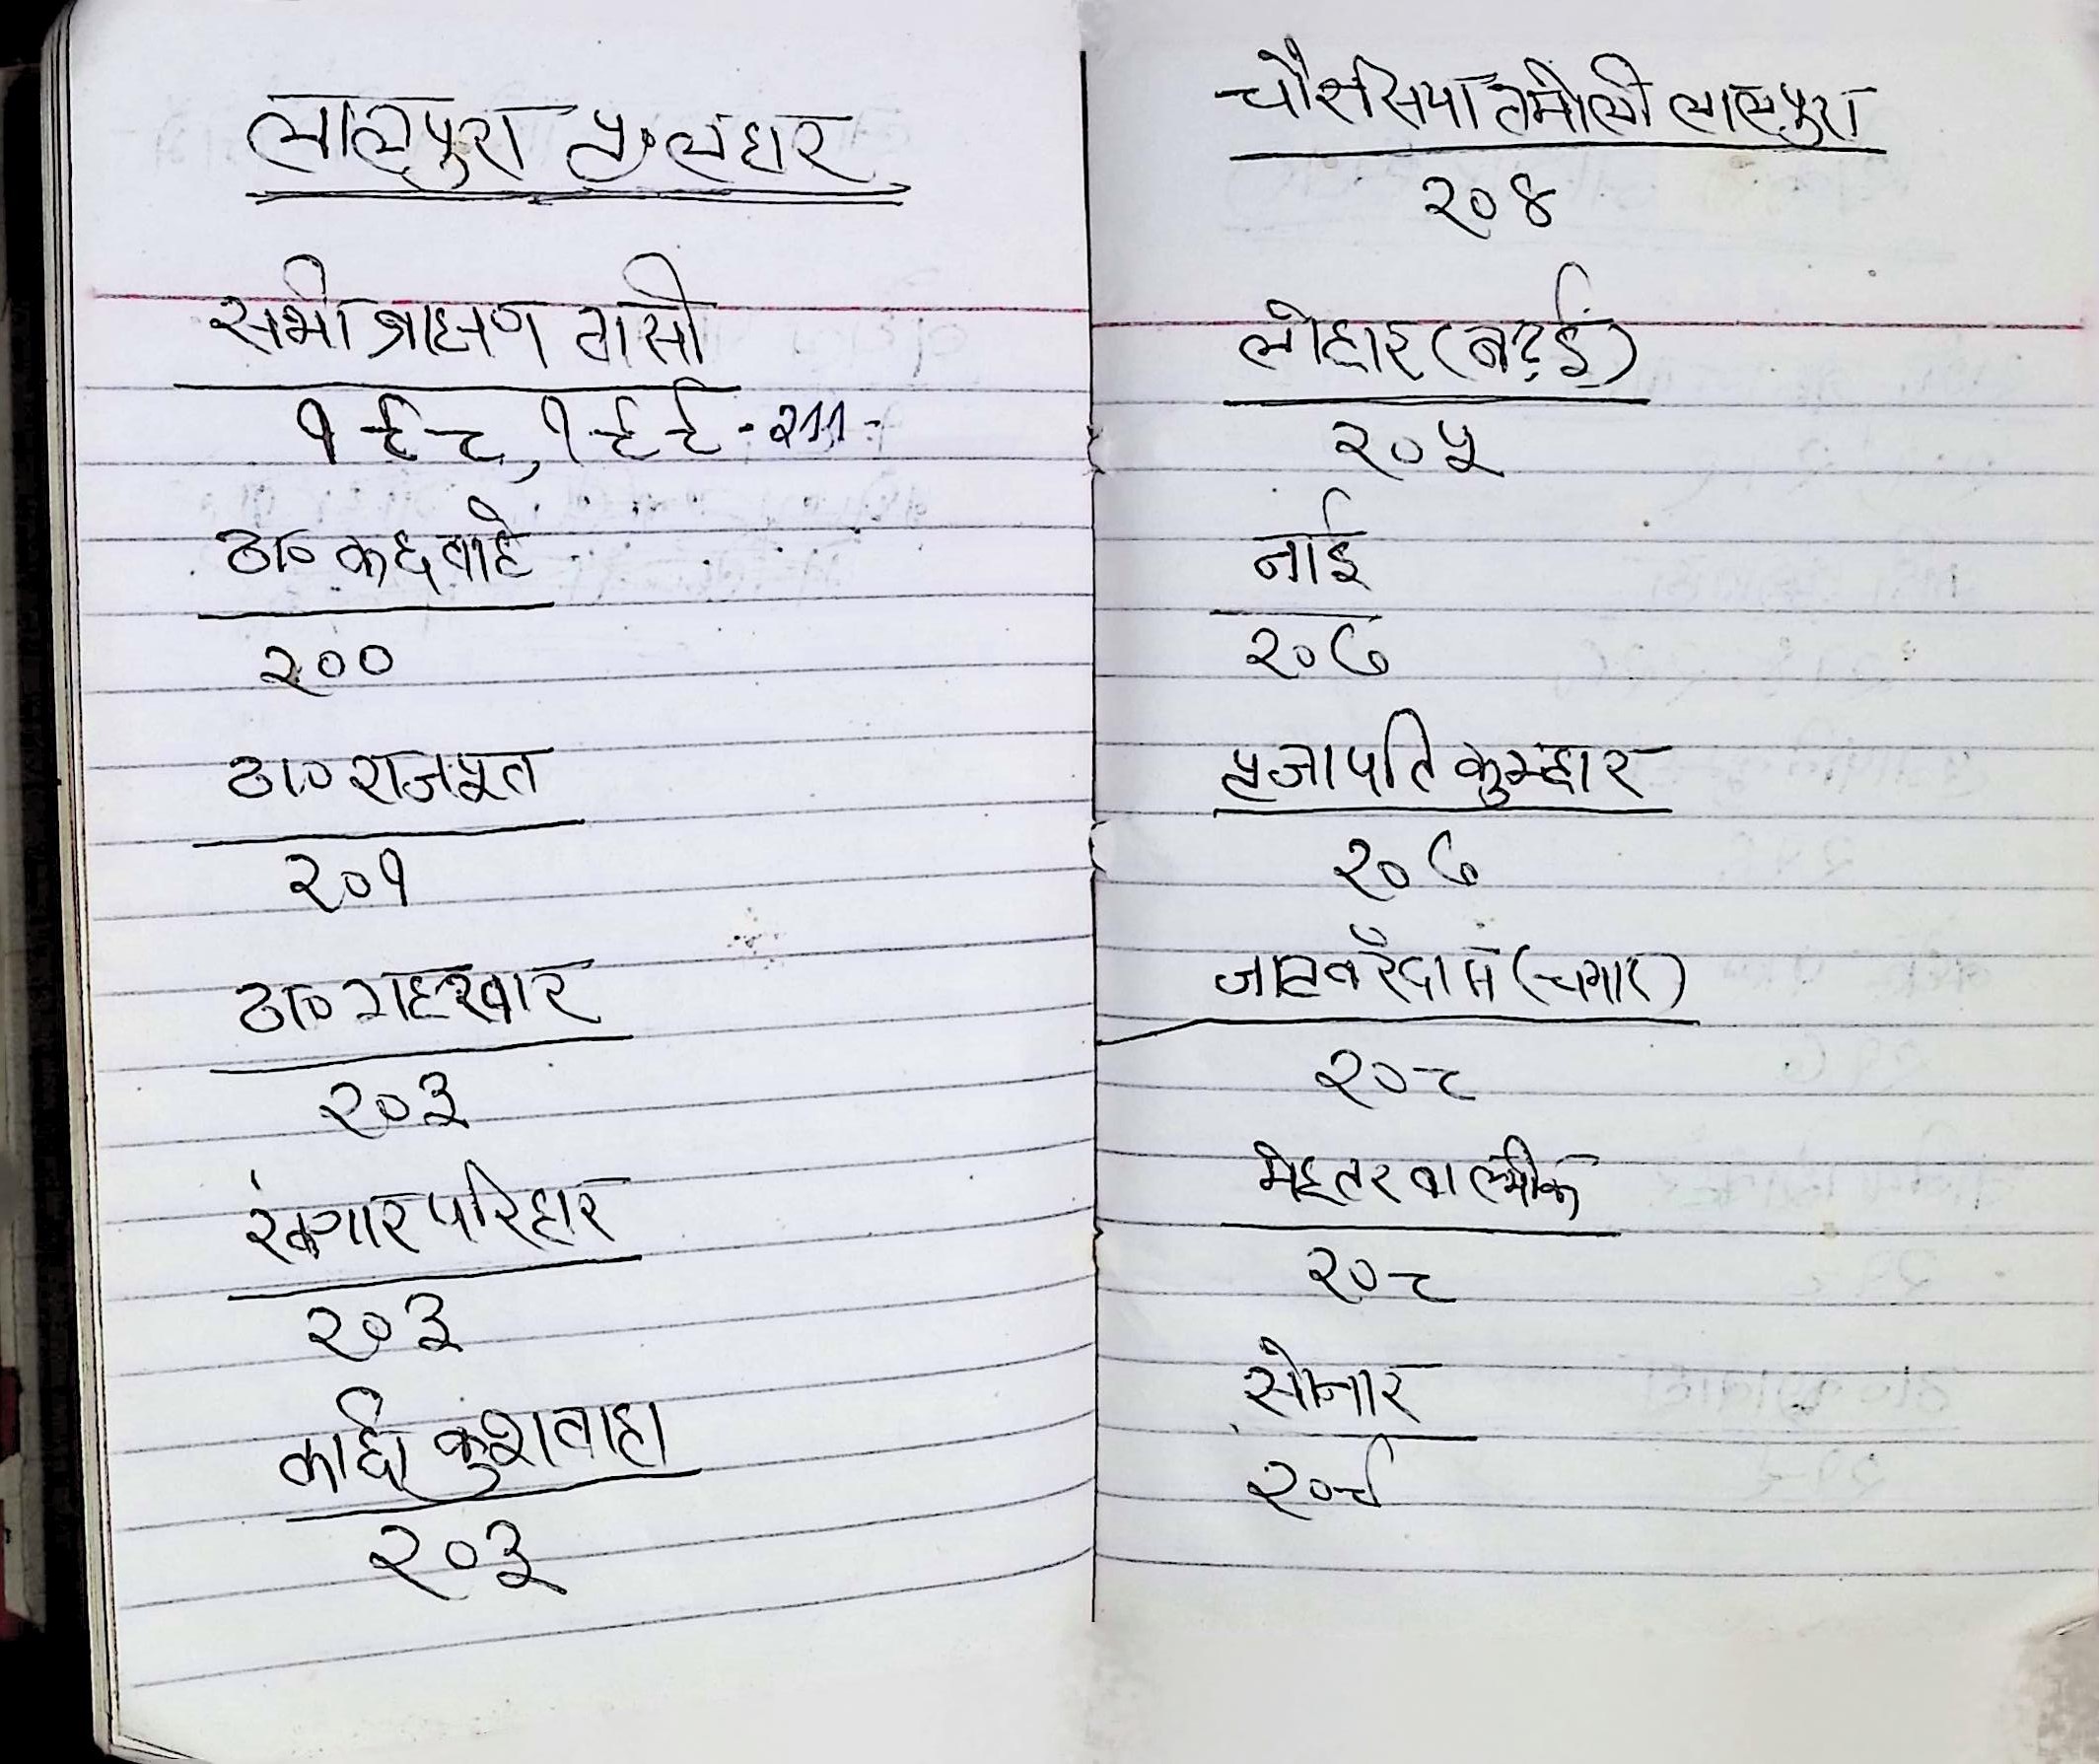 लालपुरा
सभी ब्राह्मण वासी
१९८, १९९
ठा० कछवाहे
२००
ठा० राजपूत
२०१
ठा० गहरवार
२०३
खंगार परिहार
२०३
काछी कुशवाहा
२०३
चौरसिया तमोली लालपुरा
२०४
लोहार (बढ़ई)
२०५
नाई
२०७
प्रजापति कुम्हार
२०७
जाटव रैदास (चमार)
२०८
मेहतर वाल्मीक
२०८
सोनार
२०९